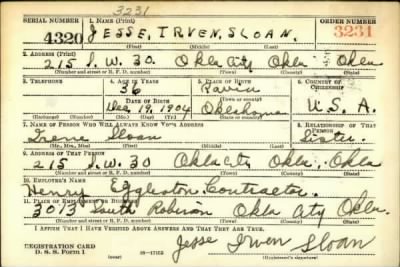 3231
SERIAL NUMBER 1. NAME (Print) ORDER NUMBER
4320 JESSE, IRVEN, SLOAN. 3231
(First) (Middle) (Last)
2. ADDRESS (Print)
215 S.W. 30 Okla City Okla Okla
(Number and street or R. F. D. number) (Town) (County) (State)
3. TELEPHONE 4. AGE IN YEARS 5. PLACE OF BIRTH 6. COUNTRY OF CITIZENSHIP
36
DATE OF BIRTH (Town or county)
Dec 19, 1904 Oklahoma U.S.A.
(Exchange) (Number) (Mo.) (Day) (Yr.) (State or country)
7. NAME OF PERSON WHO WILL ALWAYS KNOW YOUR ADDRESS 8. RELATIONSHIP OF THAT PERSON
Irene Sloan Sister
(Mr., Mrs., Miss) (First) (Middle) (Last)
9. ADDRESS OF THAT PERSON
215 S.W. 30 Okla City Okla. Okla
(Number and street or R. F. D. number) (Town) (County) (State)
10. EMPLOYER'S NAME
Henry Eggleston Contractor.
11. PLACE OF EMPLOYMENT OR BUSINESS
3013 South Robinson Okla City Okla.
(Number and street or R. F. D. number) (Town) (County) (State)
I AFFIRM THAT I HAVE VERIFIED ABOVE ANSWERS AND THAT THEY ARE TRUE.
REGISTRATION CARD
D. S. S. Form 1 Jesse Irven Sloan